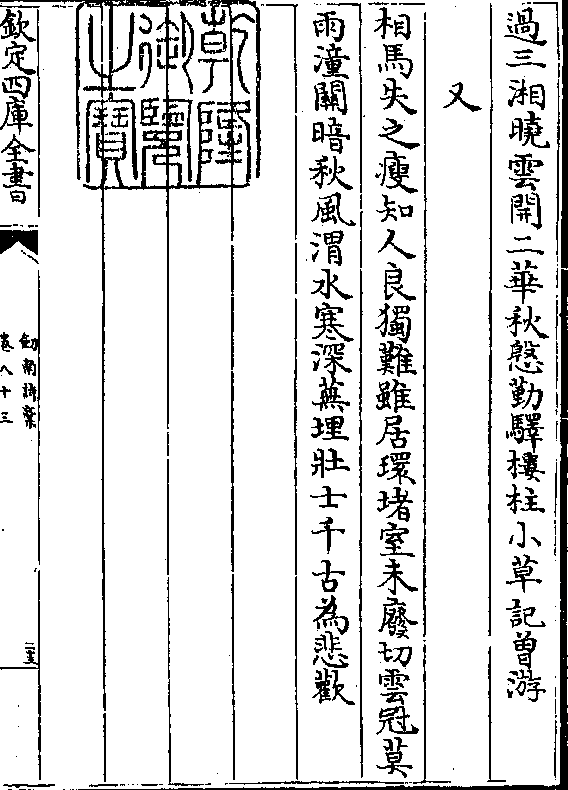 過三湘曉雲開二華秋慇勤驛樓柱小草記曽游
又
相馬失之瘦知人良獨難雖居環堵室未廢切雲冠莫
雨潼關暗秋風渭水寒深蕪埋壯士千古為悲歡
乾隆
御覽
之寶
欽定四庫全書
劍南詩藁
卷八十三
二十五